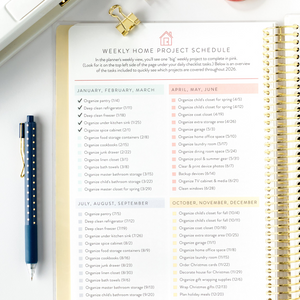 WEEKLY HOME PROJECT SCHEDULE
In the planner's weekly view, you'll see one "big" weekly project to complete in pink.
(Look for it on the top left side of the page under your daily checklist tasks.) Below is an overview
of the tasks included to quickly see which projects are covered throughout 2026.
JANUARY, FEBRUARY, MARCH
Organize pantry (1/4)
Deep clean refrigerator (1/11)
Deep clean freezer (1/18)
Organize under kitchen sink (1/25)
Organize spice cabinet (2/1)
Organize food storage containers (2/8)
Organize cookbooks (2/15)
Organize junk drawer (2/22)
Organize linen closet (3/1)
Organize bath towels (3/8)
Organize master bathroom storage (3/15)
Organize children's bathroom storage (3/22)
Organize master closet for spring (3/29)
APRIL, MAY, JUNE
Organize child's closet for spring (4/5)
Organize child's closet for spring (4/12)
Organize coat closet (4/19)
Organize extra storage area (4/26)
Organize garage (5/3)
Organize home office space (5/10)
Organize laundry room (5/17)
Organize dining room space (5/24)
Organize pool & summer gear (5/31)
Clear & print device photos (6/7)
Backup devices (6/14)
Organize TV cabinet & media (6/21)
Clean outdoors (6/28)
JULY, AUGUST, SEPTEMBER
Organize pantry (7/5)
Deep clean refrigerator (7/12)
Deep clean freezer (7/19)
Organize under kitchen sink (7/26)
Organize spice cabinet (8/2)
Organize food storage containers (8/9)
Organize cookbooks (8/16)
Organize junk drawer (8/23)
Organize linen closet (8/30)
Organize bath towels (9/6)
Organize master bathroom storage (9/13)
Organize children's bathroom storage (9/20)
OCTOBER, NOVEMBER, DECEMBER
Organize child's closet for fall (10/4)
Organize child's closet for fall (10/11)
Organize coat closet (10/18)
Organize extra storage area (10/25)
Organize garage (11/1)
Organize home office space (11/8)
Organize laundry room (11/15)
Order Christmas cards (11/22)
Decorate house for Christmas (11/29)
Organize gift-wrapping supplies (12/6)
Wrap Christmas gifts (12/13)
Plan holiday meals (12/20)